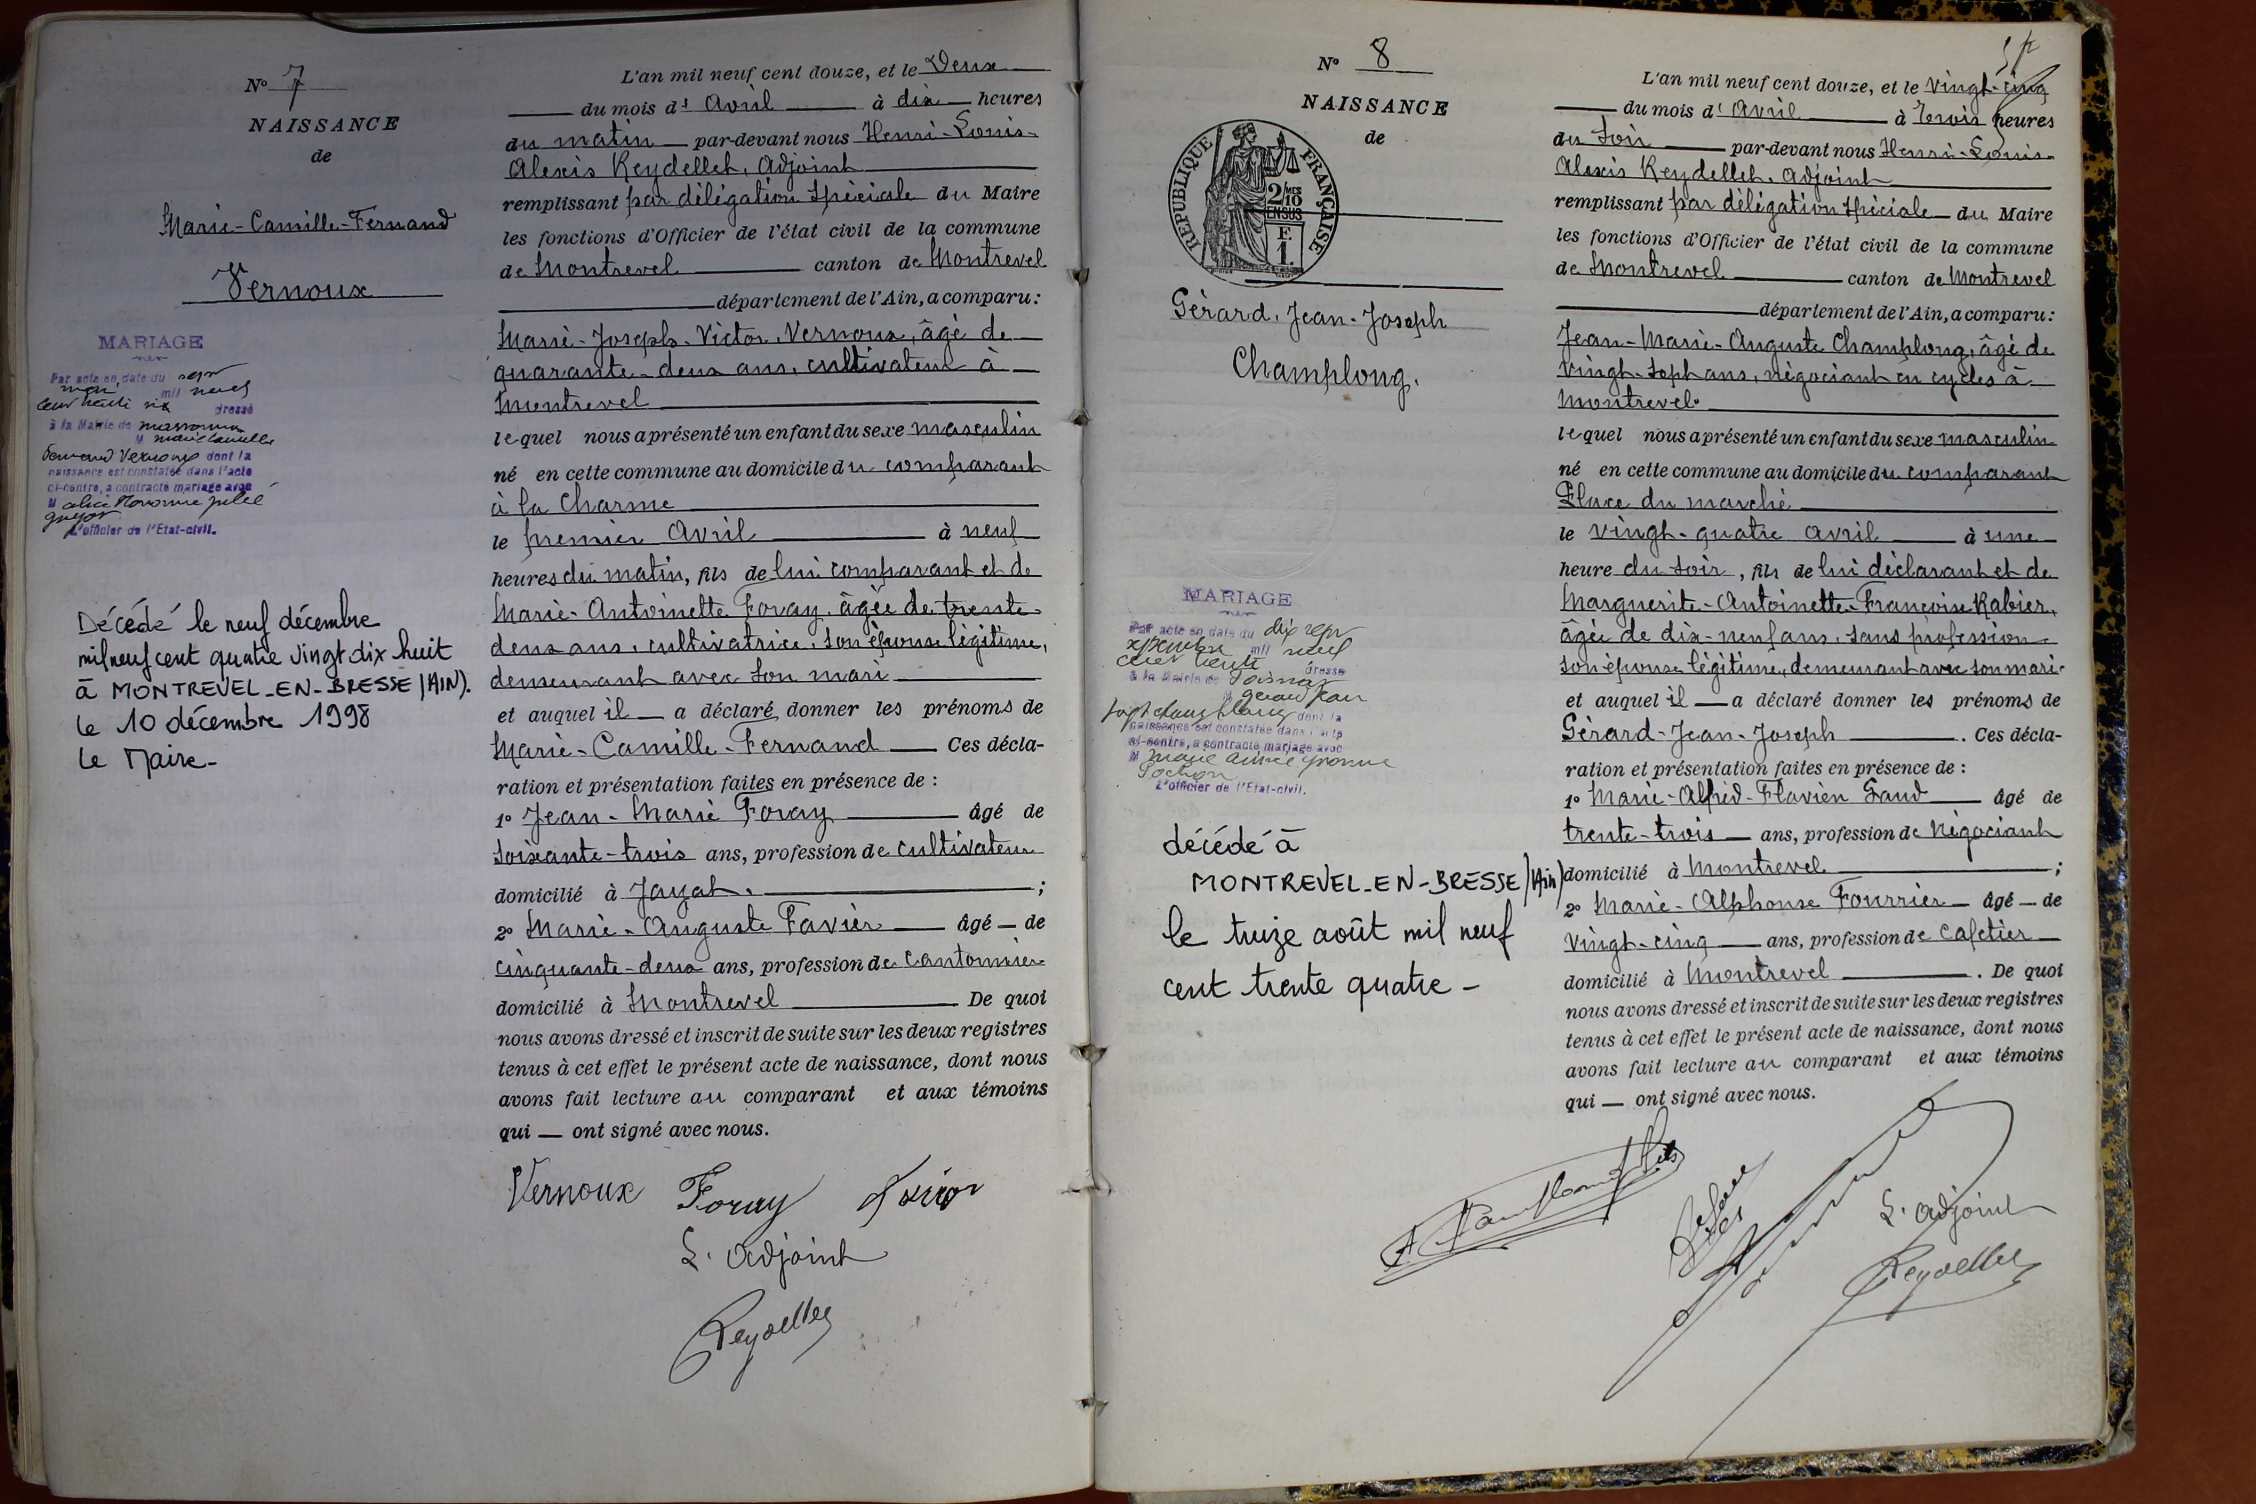 N° 7
NAISSANCE
de
Marie-Camille-Fernand
Vernoux
MARIAGE
Par acte en date du sept
mai mil neuf
cent trente six dressé
à la Mairie de
M Marie Camille
Fernand Vernoux dont la
naissance est constatée dans l'acte
ci-contre, a contracté mariage avec
M
L'officier de l'Etat-civil.
Décédé le neuf décembre
mil neuf cent quatre vingt dix huit
à MONTREVEL-EN-BRESSE (AIN).
le 10 décembre 1998
Le Maire-
L'an mil neuf cent douze, et le Deux
du mois d' Avril à dix heures
du matin par-devant nous Henri-Louis-
Alexis Reydellet, Adjoint
remplissant par délégation spéciale du Maire
les fonctions d'Officier de l'état civil de la commune
de Montrevel canton de Montrevel
département de l'Ain, a comparu:
Marie-Joseph-Victor Vernoux, âgé de
quarante-deux ans, cultivateur à
Montrevel
lequel nous a présenté un enfant du sexe masculin
né en cette commune au domicile du comparant
à la Charme
le premier Avril à neuf
heures du matin, fils de lui comparant et de
Marie-Antoinette Foray, âgée de trente-
deux ans, cultivatrice, son épouse légitime,
demeurant avec son mari
et auquel il a déclaré donner les prénoms de
Marie-Camille-Fernand Ces décla-
ration et présentation faites en présence de :
1° Jean-Marie Foray âgé de
soixante-trois ans, profession de cultivateur
domicilié à Jayat. ;
2° Marie-Auguste Favier âgé de
cinquante-deux ans, profession de cantonnier
domicilié à Montrevel De quoi
nous avons dressé et inscrit de suite sur les deux registres
tenus à cet effet le présent acte de naissance, dont nous
avons fait lecture au comparant et aux témoins
qui ont signé avec nous.
Vernoux Foray
L'adjoint
Reydellet
N° 8
NAISSANCE
de
REPUBLIQUE FRANÇAISE
2/10MES
EN SUS
F.
1.
Gérard, Jean-Joseph
Champlong.
MARIAGE
Par acte en date du dix sept
mil neuf
cent trente dressé
à la Mairie de
M Gérard Jean
dont la
naissance est constatée dans l'acte
ci-contre, a contracté mariage avec
M Marie Aimée Yvonne
Pochon
L'officier de l'Etat-civil.
décédé à
MONTREVEL-EN-BRESSE (Ain)
le treize août mil neuf
cent trente quatre-
L'an mil neuf cent douze, et le vingt-cinq
du mois d' Avril à trois heures
du soir par-devant nous Henri-Louis-
Alexis Reydellet, Adjoint
remplissant par délégation spéciale du Maire
les fonctions d'Officier de l'état civil de la commune
de Montrevel canton de Montrevel
département de l'Ain, a comparu:
Jean-Marie-Auguste Champlong, âgé de
vingt-sept ans, négociant en cycles à
Montrevel.
lequel nous a présenté un enfant du sexe masculin
né en cette commune au domicile du comparant
Place du marché
le vingt-quatre avril à une
heure du soir, fils de lui déclarant et de
Marguerite-Antoinette-Françoise Rabier,
âgée de dix-neuf ans, sans profession
son épouse légitime, demeurant avec son mari
et auquel il a déclaré donner les prénoms de
Gérard-Jean-Joseph . Ces décla-
ration et présentation faites en présence de :
1° Marie-Alfred-Flavien âgé de
trente-trois ans, profession de négociant
domicilié à Montrevel ;
2° Marie-Alphonse Fourrier âgé de
vingt-cinq ans, profession de cafetier
domicilié à Montrevel . De quoi
nous avons dressé et inscrit de suite sur les deux registres
tenus à cet effet le présent acte de naissance, dont nous
avons fait lecture au comparant et aux témoins
qui ont signé avec nous.
L'adjoint
Reydellet